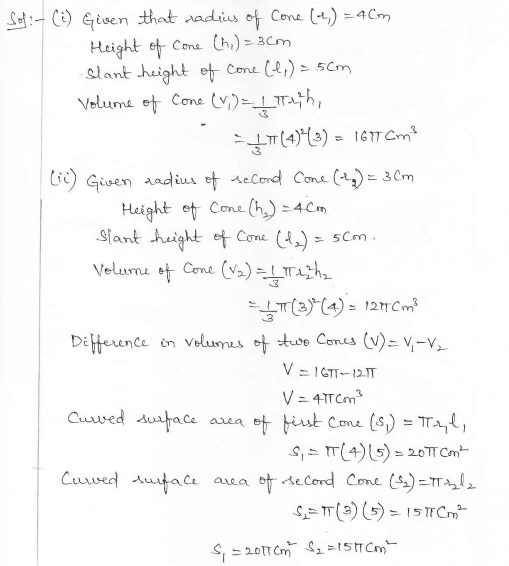 Sol:- (i) Given that radius of Cone (r₁) = 4Cm
Height of Cone (h₁) = 3Cm
Slant height of Cone (l₁) = 5Cm
Volume of Cone (V₁) = 1/3 πr₁²h₁
= 1/3 π(4)²(3) = 16π Cm³
(ii) Given radius of second Cone (r₂) = 3Cm
Height of Cone (h₂) = 4Cm
Slant height of Cone (l₂) = 5Cm.
Volume of Cone (V₂) = 1/3 πr₂²h₂
= 1/3 π(3)²(4) = 12π Cm³
Difference in volumes of two Cones (V) = V₁-V₂
V = 16π-12π
V = 4π Cm³
Curved surface area of first Cone (S₁) = πr₁l₁
S₁ = π(4)(5) = 20π Cm²
Curved surface area of second Cone (S₂) = πr₂l₂
S₂ = π(3)(5) = 15π Cm²
S₁ = 20π Cm² S₂ = 15π Cm²